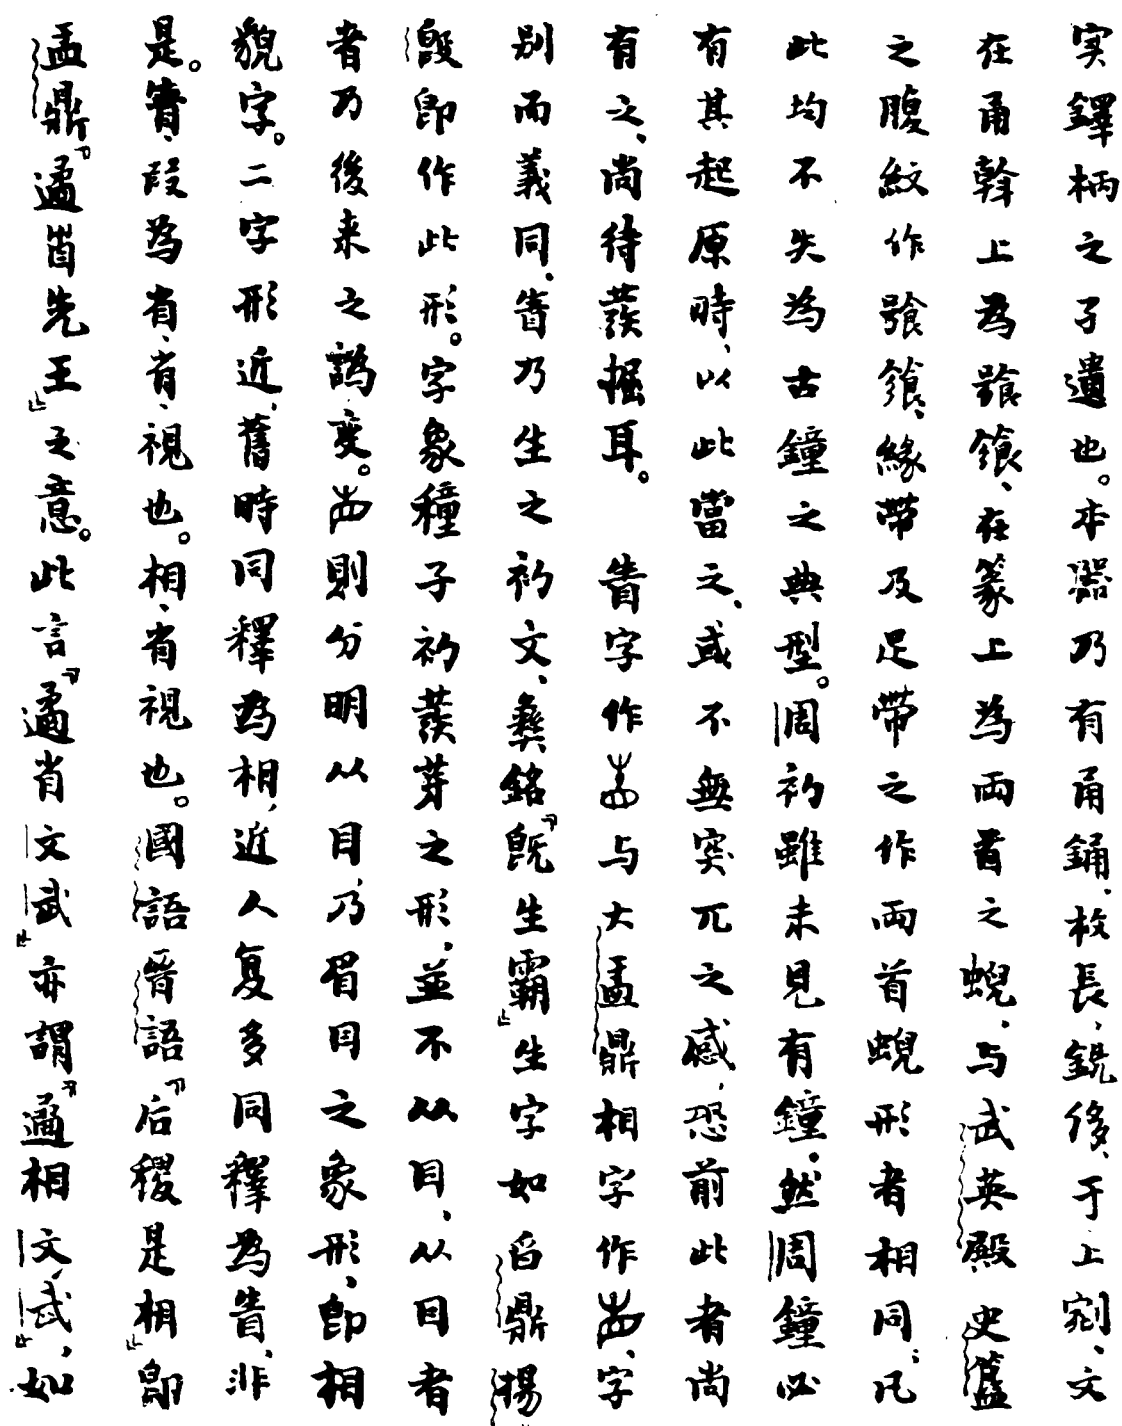 实鐸柄之孑遺也。本器乃有甬鋪、枚長、銑侈、于上剜、文
在甬斡上為饕餮、在篆上為兩首之蜺、与武英殿史簠
之腹紋作饕餮、緣帶及足帶之作兩首蜺形者相同、凡
此均不失為古鐘之典型。周初雖未見有鐘、然周鐘必
有其起原時、以此當之、或不無突兀之感、恐前此者尚
有之、尚待發掘耳。眚字作与大盂鼎相字作、字
別而義同、眚乃生之初文、彝銘『既生霸』生字如𦣻鼎揚
𣪘即作此形。字象種子初發芽之形、並不从目、从目者
者乃後来之譌變。則分明从目、乃眉目之象形、即相
貌字。二字形近、舊時同釋為相、近人复多同釋為眚、非
是。眚、段為省、省、視也。相、省視也。國語晉語『后稷是相』即
盂鼎『遹眚先王』之意。此言『遹省文武』亦謂『遹相文、武』、如